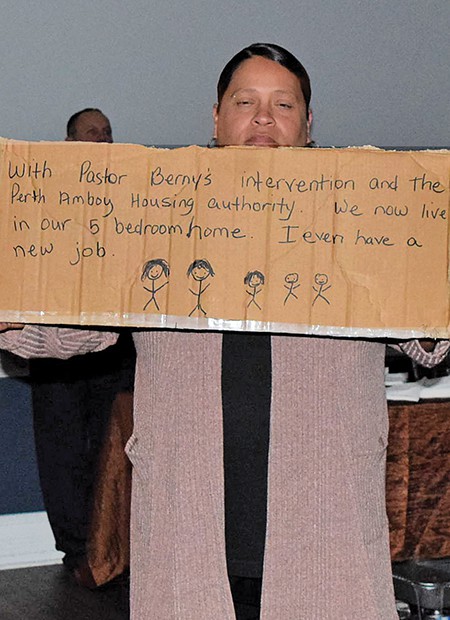 With Pastor Berny's intervention and the
Perth Amboy Housing authority. We now live
in our 5 bedroom home. I even have a
new job.